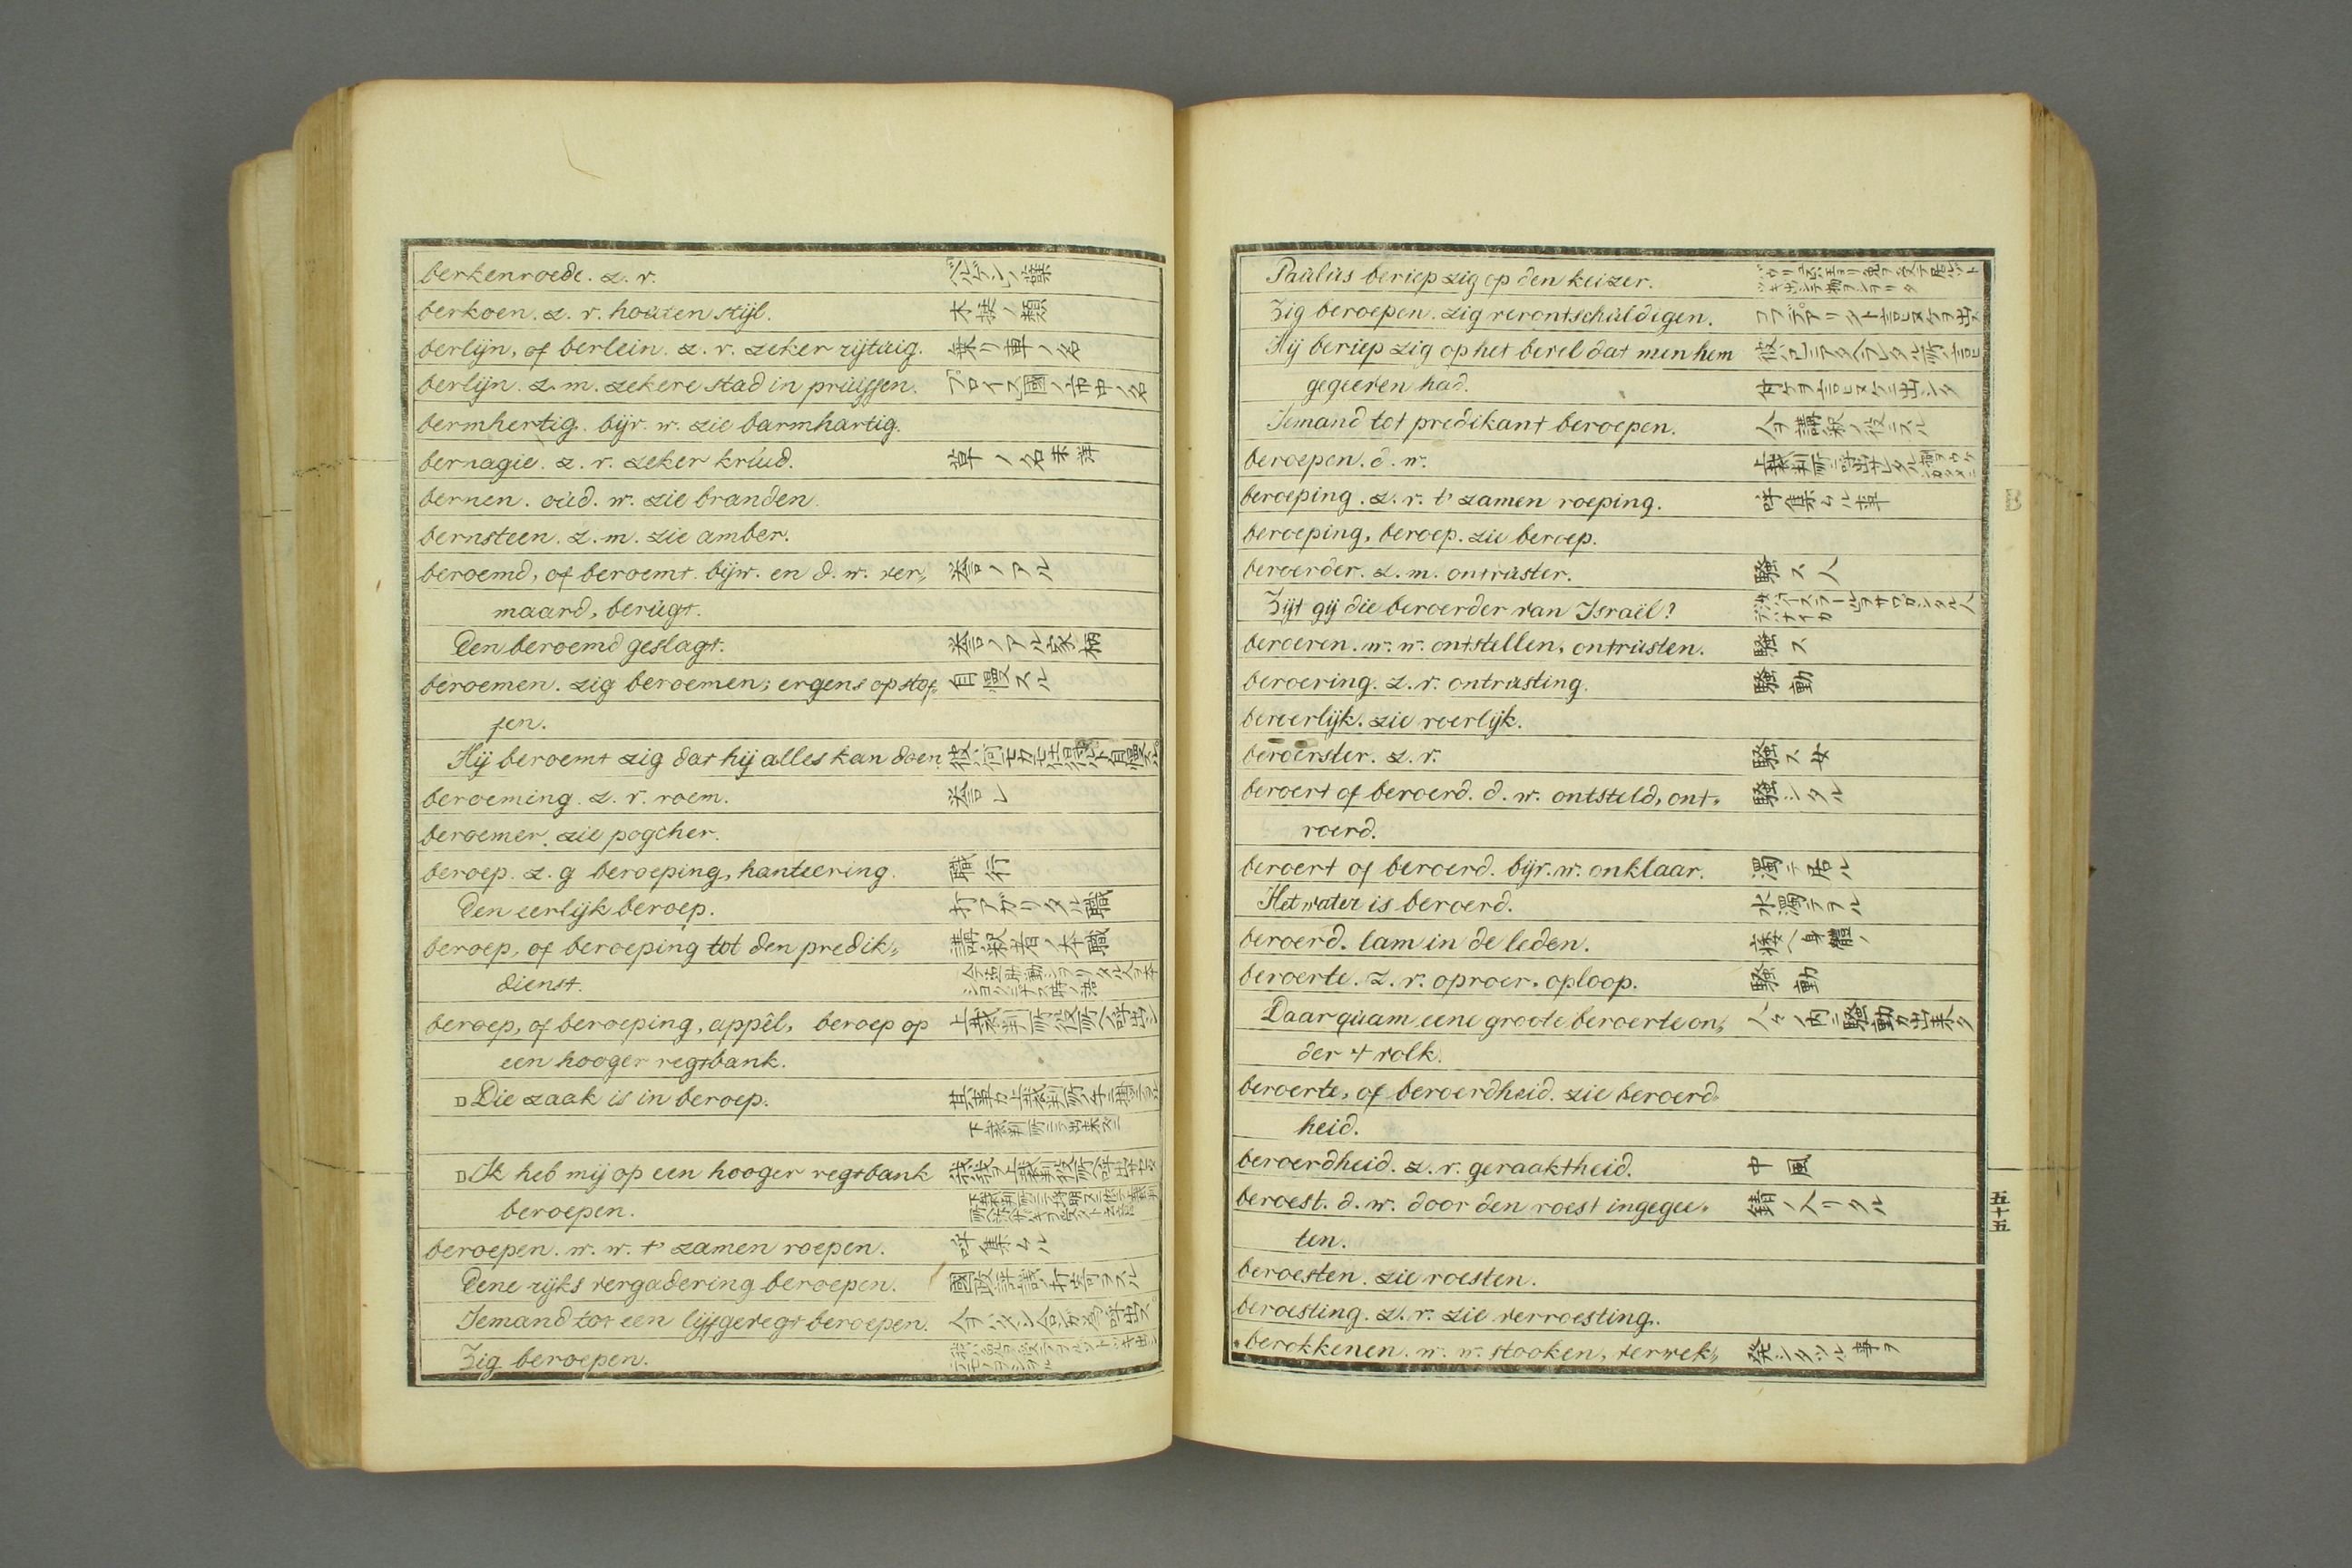 berkenroede. z. v. ベルケンノ葉
berkoen. z. v. houten stijl. 木挺ノ類
berlijn, of berlein. z. v. zeker rijtuig. 乗リ車ノ名
berlijn. z. m. zekere stad in pruissen. プロイス國ノ市中ノ名
bermhertig. bijv. w. zie barmhartig.
bernagie. z. v. zeker kruid. 草ノ名未詳
bernen. oud. w. zie branden.
bernsteen. z. m. zie amber.
beroemd, of beroemt. bijw. en d. w. ver„ 誉ノアル
maard, berugt.
Een beroemd geslagt. 誉ノアル家柄
beroemen. zig beroemen; ergens op stof„ 自慢スル
fen.
Hij beroemt zig dat hij alles kan doen.
beroeming. z. v. roem. 誉レ
beroemer. zie pogcher.
beroep. z. g beroeping, hanteering. 職行
Een eerlijk beroep. 打アガリタル職
beroep, of beroeping tot den predik„ 講釈者ノ本職
dienst.
beroep, of beroeping, appêl, beroep op 上裁判所役所ヘ呼出シ
een hooger regtbank.
Die zaak is in beroep.
Ik heb mij op een hooger regtbank
beroepen.
beroepen. w. w. t' zamen roepen. 呼集ムル
Eene rijks vergadering beroepen.
Iemand tot een lijfgevegt beroepen.
Zig beroepen.
Paulus beriep zig op den keizer.
Zig beroepen. zig verontschuldigen.
Hij beriep zig op het bevel dat men hem
gegeeven had.
Iemand tot predikant beroepen. 人ヲ講釈ノ役ニスル
beroepen. d. w.
beroeping. z. v. t' zamen roeping. 呼集ムル事
beroeping, beroep. zie beroep.
beroerder. z. m. ontruster. 騒ス人
Zijt gij die beroerder van Israël?
beroeren. w. w. ontstellen, ontrusten. 騒ス
beroering. z. v. ontrusting. 騒動
beroerlijk. zie roerlijk.
beroerster. z. v. 騒ス女
beroert of beroerd. d. w. ontsteld, ont„ 騒シタル
roerd.
beroert of beroerd. bijv. w. onklaar. 濁テ居ル
Het water is beroerd. 水濁テヲル
beroerd. lam in de leden. 痿ヘ身體ノ
beroerte. z. v. oproer. oploop. 騒動
Daar quam eene groote beroerte on„ 人々ノ内ニ騒動ガ出来タ
der 't volk.
beroerte, of beroerdheid. zie beroerd„
heid.
beroerdheid. z. v. geraaktheid. 中風
beroest. d. w. door den roest ingegee„ 錆ノ入リタル
ten.
beroesten. zie roesten.
beroesting. z. v. zie verroesting.
berokkenen. w. w. stooken, verwek„ 発シタツル事ヲ
B
五十五